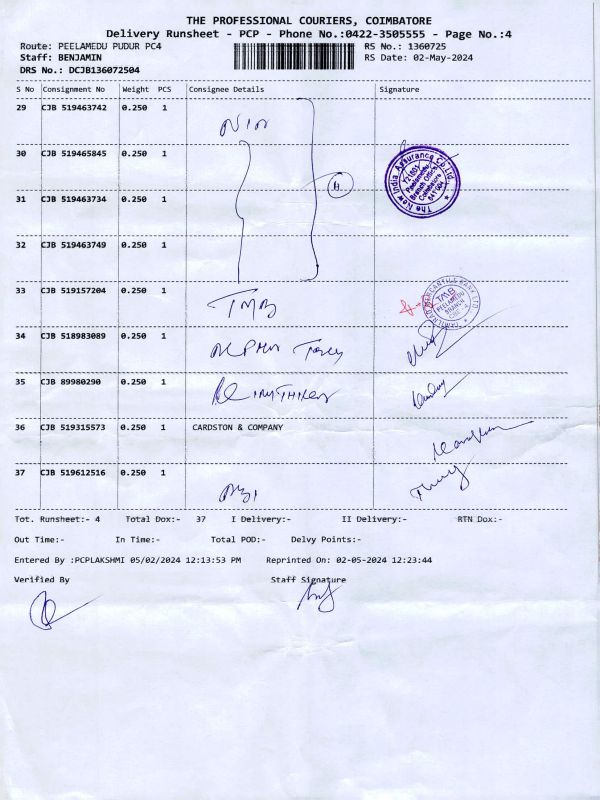 THE PROFESSIONAL COURIERS, COIMBATORE
Delivery Runsheet - PCP - Phone No.:0422-3505555 - Page No.:4
Route: PEELAMEDU PUDUR PC4
RS No.: 1360725
Staff: BENJAMIN
RS Date: 02-May-2024
DRS No.: DCJB136072504
S No Consignment No Weight PCS Consignee Details Signature
29 CJB 519463742 0.250 1
30 CJB 519465845 0.250 1
The New India Assurance Co. Ltd.
721601
Peelamedu
Branch Office
Coimbatore
641 004
31 CJB 519463734 0.250 1
32 CJB 519463749 0.250 1
33 CJB 519157204 0.250 1 TMB
TAMILNAD MERCANTILE BANK LTD
TMB
PEELAMEDU
BRANCH
CBE - 4
34 CJB 518983089 0.250 1
35 CJB 89980290 0.250 1
36 CJB 519315573 0.250 1 CARDSTON & COMPANY
37 CJB 519612516 0.250 1
Tot. Runsheet:- 4 Total Dox:- 37 I Delivery:- II Delivery:- RTN Dox:-
Out Time:- In Time:- Total POD:- Delvy Points:-
Entered By :PCPLAKSHMI 05/02/2024 12:13:53 PM Reprinted On: 02-05-2024 12:23:44
Verified By Staff Signature